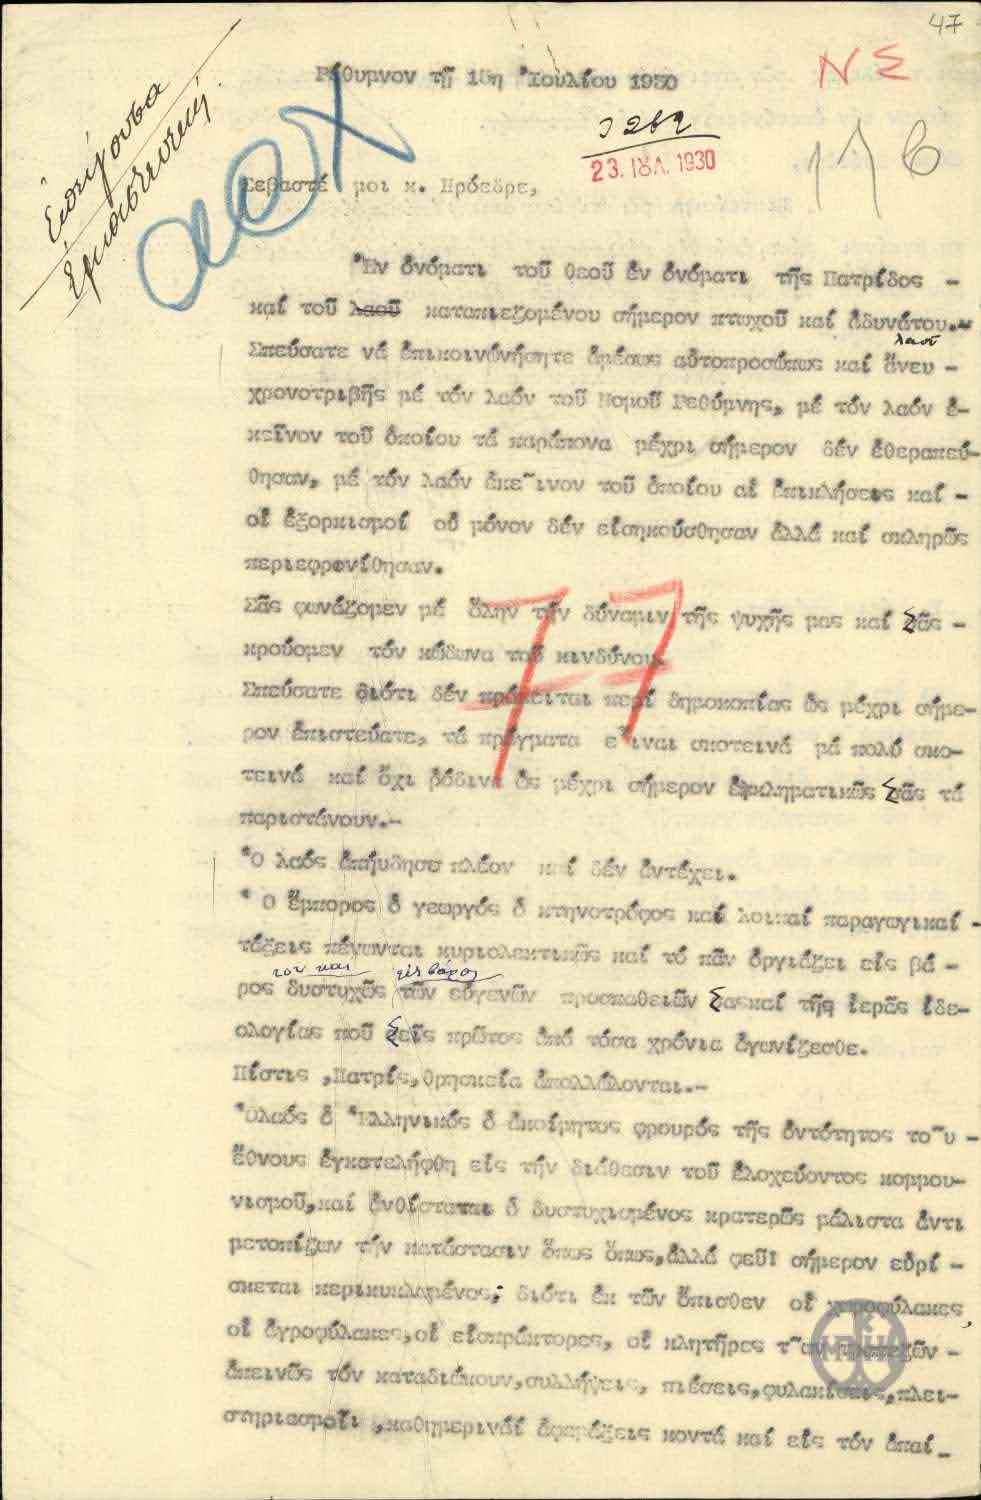 47
Ν Σ
Ῥέθυμνον τῇ 18ῃ Ἰουλίου 1930
Ἐπείγουσα
Ἐμπιστευτική
23. ΙΟΥΛ. 1930
Σεβαστέ μοι κ. Πρόεδρε,
Ἐν ὀνόματι τοῦ θεοῦ ἐν ὀνόματι τῆς Πατρίδος -
καί τοῦ λαοῦ καταπιεζομένου σήμερον πτωχοῦ καί ἀδυνάτου.-
λαοῦ
Σπεύσατε νά ἐπικοινωνήσητε ἀμέσως αὐτοπροσώπως καί ἄνευ -
χρονοτριβῆς μέ τόν λαόν τοῦ Νομοῦ Ρεθύμνης, μέ τόν λαόν ἐ-
κεῖνον τοῦ ὁποίου τά παράπονα μέχρι σήμερον δέν ἐθεραπεύ-
θησαν, μέ τόν λαόν ἐκε῀ινον τοῦ ὁποίου αἱ ἐπικλήσεις καί -
οἱ ἐξορκισμοί οὐ μόνον δέν εἰσηκούσθησαν ἀλλά καί σκληρῶς
περιεφρονίθησαν.
Σᾶς φωνάζομεν μέ ὅλην τήν δύναμιν τῆς ψυχῆς μας καί Σᾶς -
κρούομεν τόν κώδωνα τοῦ κινδύνου.
Σπεύσατε διότι δέν πρόκειται περί δημοκοπίας ὡς μέχρι σήμε-
ρον ἐπιστεύατε, τά πράγματα ε῏ιναι σκοτεινά μά πολύ σκο-
τεινά καί ὄχι ρόδινα ὡς μέχρι σήμερον ἐγκληματικῶς Σᾶς τά
παριστάνουν.-
Ὁ λαός ἐπήυδησε πλέον καί δέν ἀντέχει.
Ὁ ἔμπορος ὁ γεωργός ὁ κτηνοτρόφος καί λοιπαί παραγωγικαί -
τάξεις πένωνται κυριολεκτικῶς καί τό πᾶν ὀργιάζει εἰς βά -
του και εἰς βάρος
ρος δυστυχῶς τῶν εὐγενῶν προσπαθειῶν Σας καί τῆς ἱερᾶς ἰδε-
ολογίας ποῦ Σεῖς πρῶτος ἀπό τόσα χρόνια ἀγωνίζεσθε.
Πίστις ,Πατρίς,θρησκεία ἀπολλύονται.-
Ὁλαός ὁ Ἑλληνικός ὁ ἀκοίμητος φρουρός τῆς ὀντότητος το῀υ -
ἔθνους ἐγκατελήφθη εἰς τήν διάθεσιν τοῦ ἐλοχεύοντος κομμου-
νισμοῦ,καί ἀνθίσταται ὁ δυστυχισμένος κρατερῶς μάλιστα ἀντι
μετοπίζων τήν κατάστασιν ὅπως ὅπως,ἀλλά φεῦ! σήμερον εὑρί -
σκεται περικυκλωμένος, διότι ἐκ τῶν ὄπισθεν οἱ χωροφύλακες,
οἱ ἀγροφύλακες,οἱ εἰσπράκτορες, οἱ κλητῆρες τ῀ων τραπεζῶν -
ἀπεινῶς τόν καταδιώκουν,συλλήψεις, πιέσεις,φυλακίσεις,πλει-
στηριασμοίι ,καθημερινάί ἁρπάξεις κοντά καί εἰς τόν ἀπαί_